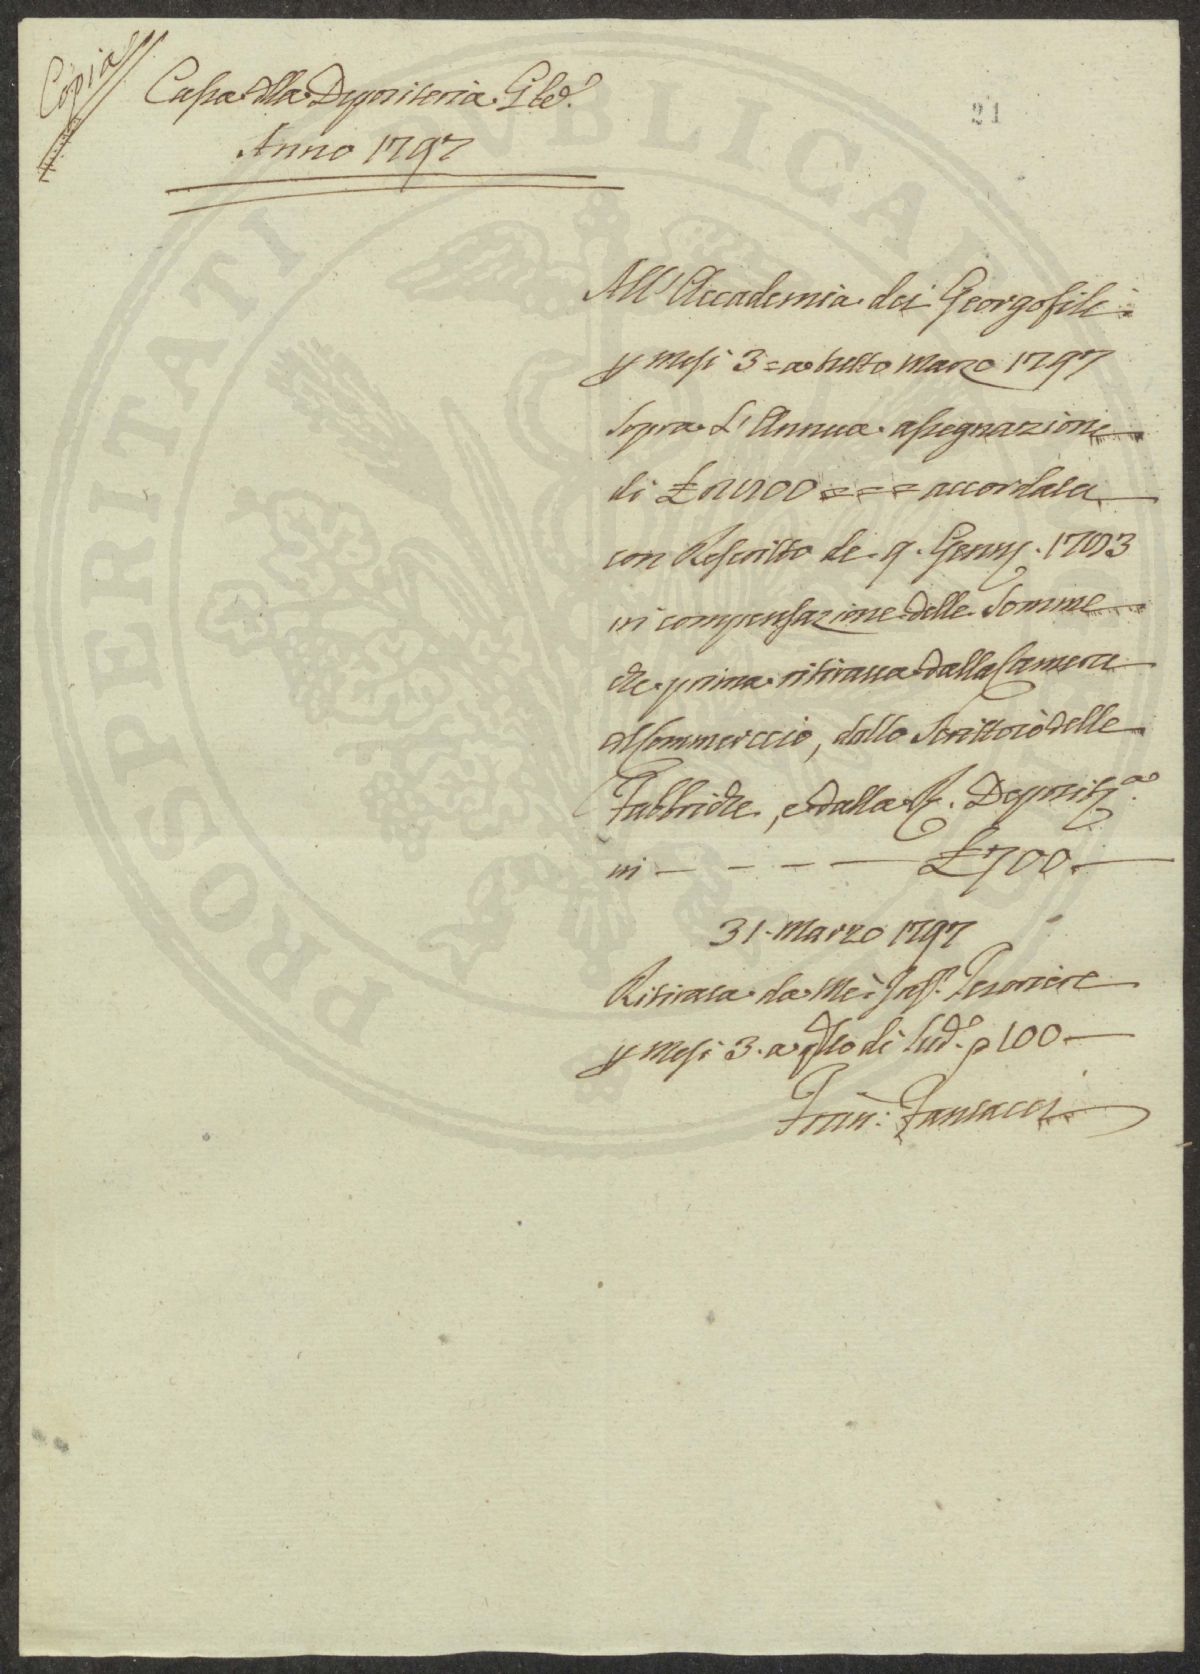 Copia
Cassa della Depositeria Gle.
Anno 1797
21
All'Accademia dei Georgofili
p mesi 3 = a tutto Marzo 1797
sopra L'Annua assegnazione
di £ 2800 = = = accordata
con Rescritto de. 9. Genn. 1783
in compensazione delle somme
che prima ritirava dalla Camera
di Commercio, dallo Scrittoio delle
Fabbriche, e dalla R. Deposit.a
in - - - - £ 700.-
31. Marzo 1797
Ritirata da Me Inf. Tesoriere
p Mesi 3. a qsto di sud. 100 -
PROSPERITATI PUBLICAE